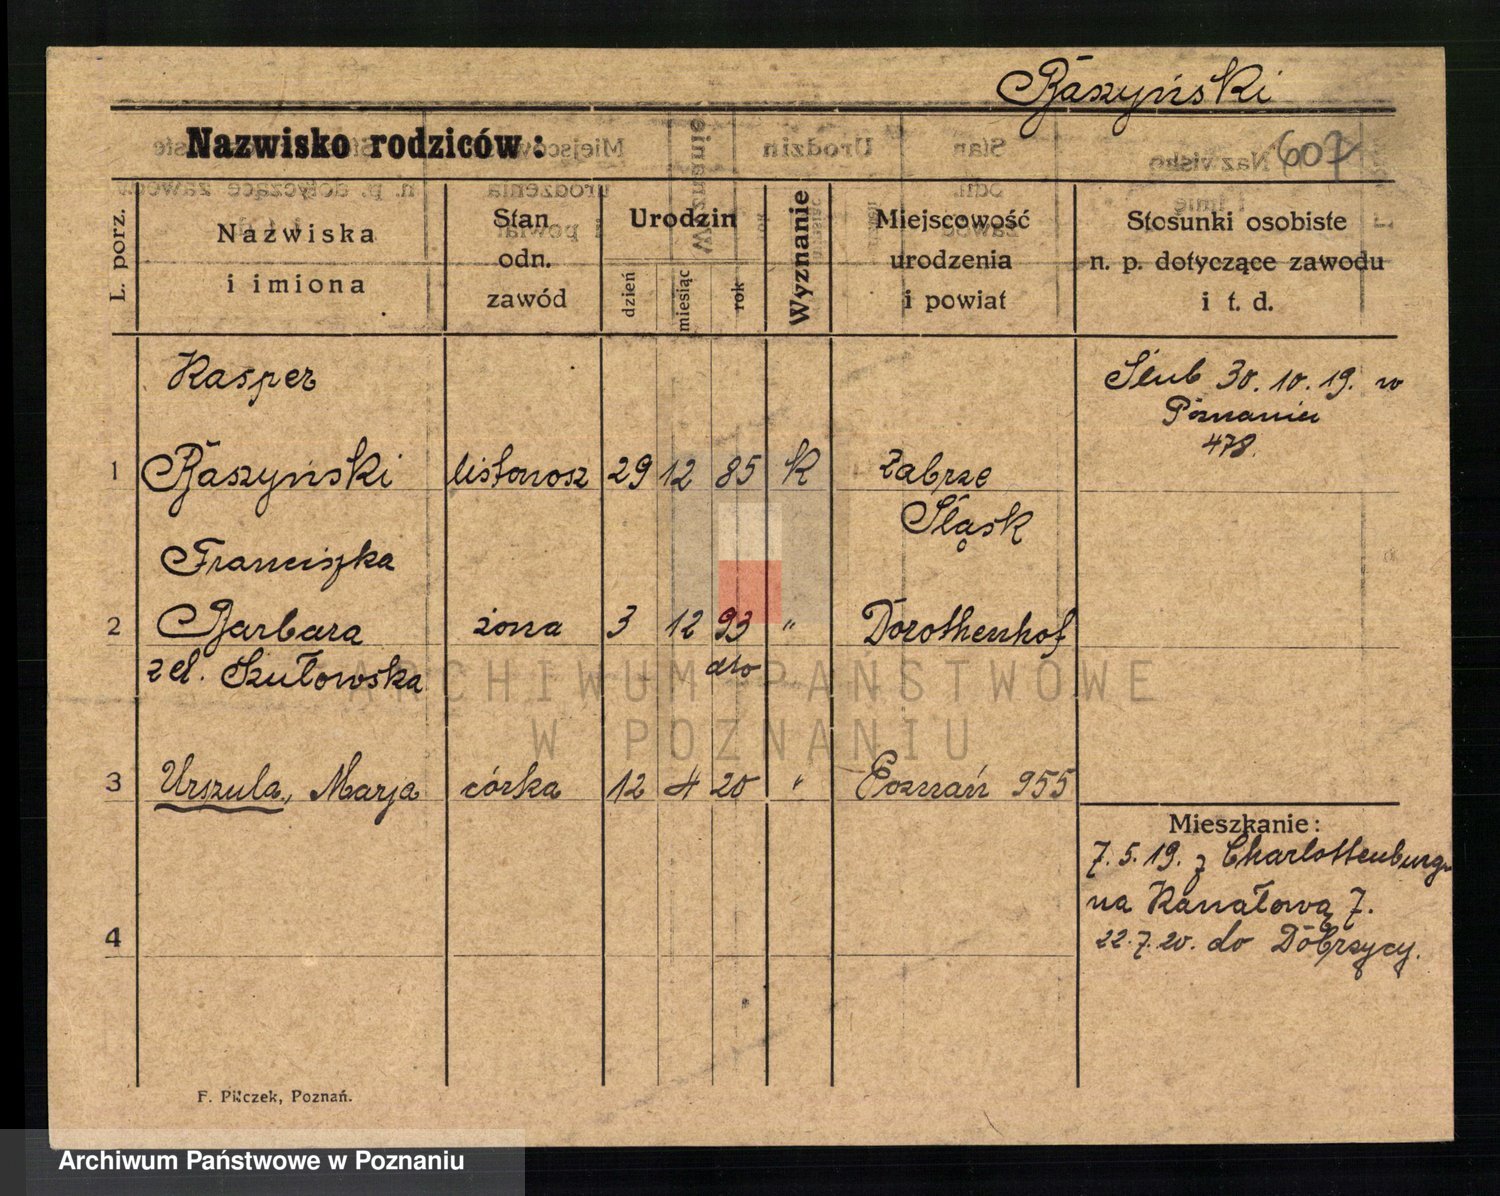 Raszyński
607
Nazwisko rodziców:
L. porz.
Nazwiska
i imiona
Stan
odn.
zawód
Urodzin
dzień
miesiąc
rok
Wyznanie
Miejscowość
urodzenia
i powiat
Stosunki osobiste
n. p. dotyczące zawodu
i t. d.
Kasper
Ślub 30.10.19. w
Poznaniu
478.
1 Raszyński listonosz 29 12 85 K Zabrze
Śląsk
Franciszka
2 Barbara żona 3 12 93 " Dorothenhof
zd. Szułowska dto
3 Urszula, Marja córka 12 4 20 " Poznań 955
Mieszkanie:
7.5.19. z Charlottenburga
na Kanałową 7.
4
22.7.20. do Dobrzycy.
F. Pilczek, Poznań.
ARCHIWUM PAŃSTWOWE
W POZNANIU
Archiwum Państwowe w Poznaniu